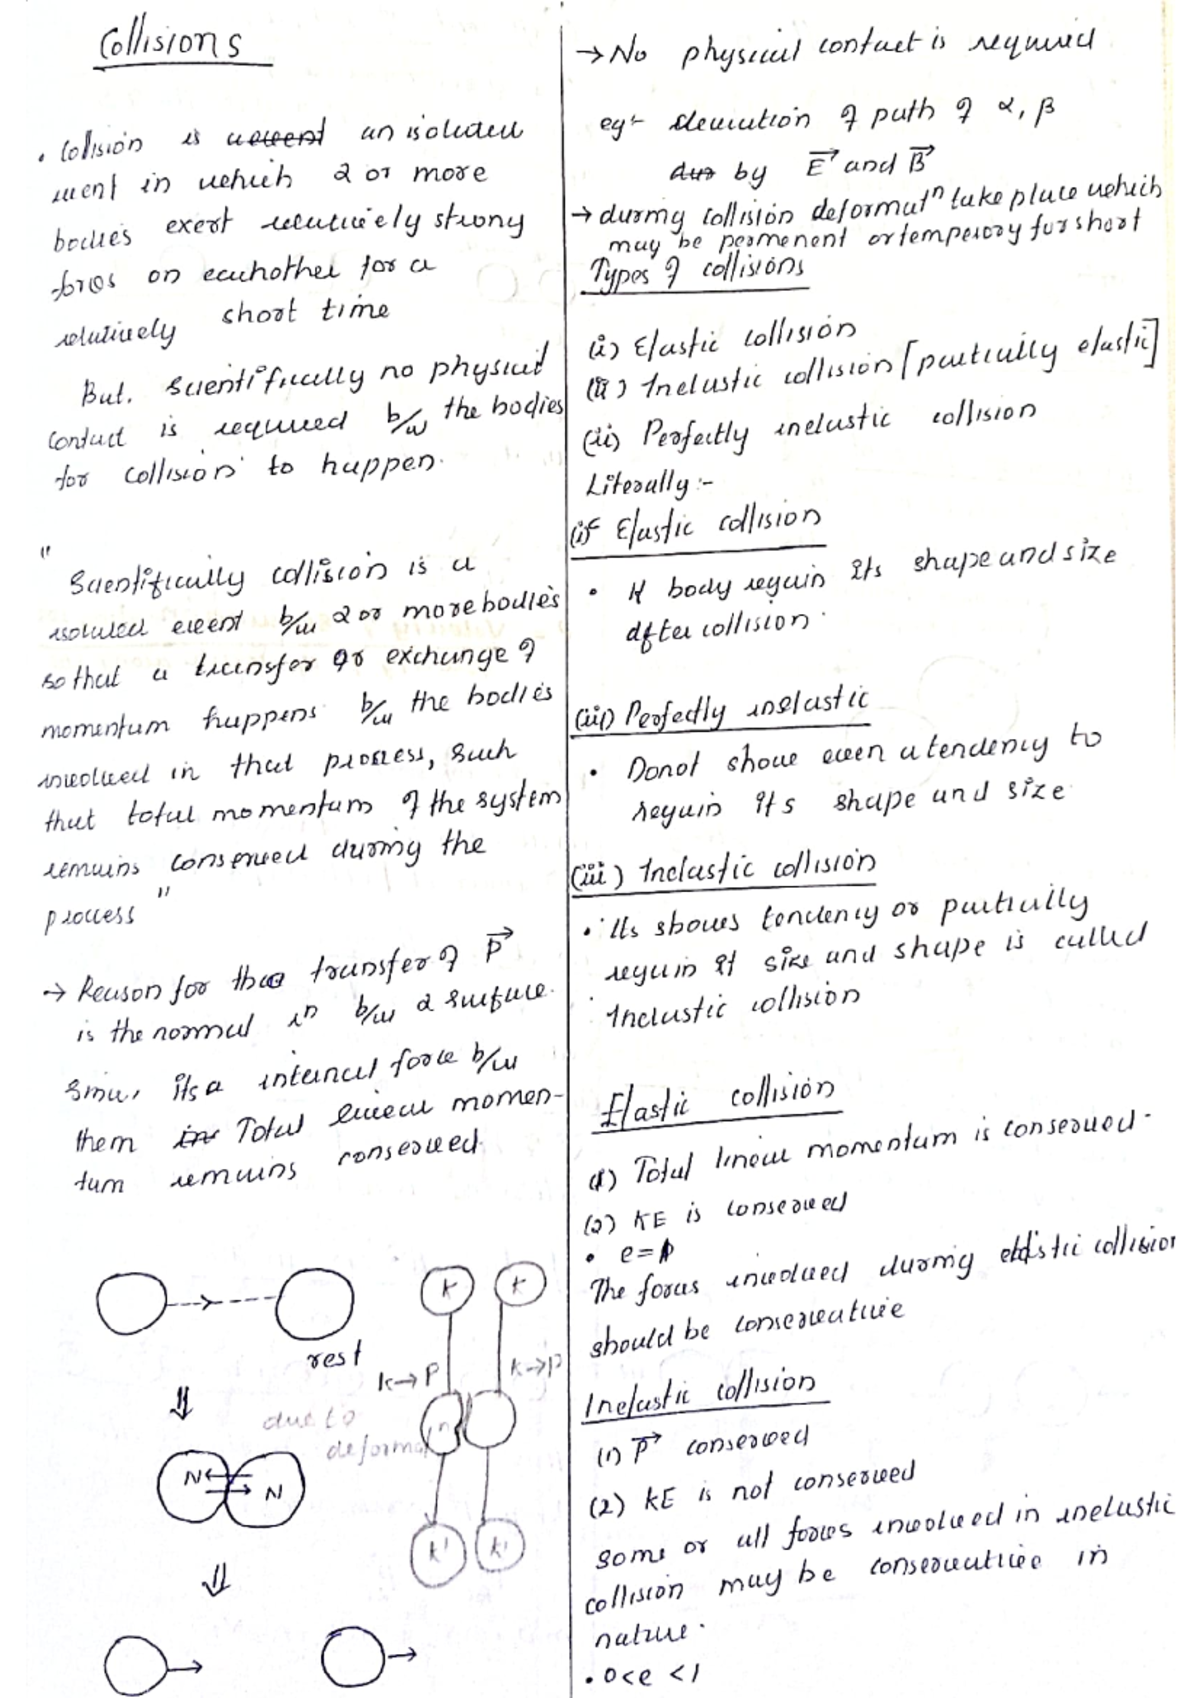 Collisions
• Collision is an isolated
event in which 2 or more
bodies exert relatively strong
forces on eachother for a
relatively short time
But, Scientifically no physical
contact is required b/w the bodies
for collision to happen.
"Scientifically collision is a
isolated event b/w 2 or more bodies
so that a transfer or exchange of
momentum happens b/w the bodies
involved in that process, such
that total momentum of the system
remains conserved during the
process"
→ Reason for the transfer of P⃗
is the normal in b/w 2 surface.
Since, its a internal force b/w
them Total linear momen-
tum remains conserved.
rest
N N
due to
deformat
K K
K→P K→P
K' K'
→ No physical contact is required
eg:- deviation of path of α, β
by E⃗ and B⃗
→ during collision deformatⁿ take place which
may be permenent or temperory for short
Types of collisions
(i) Elastic collision
(ii) Inelastic collision [partially elastic]
(iii) Perfectly inelastic collision
Literally :-
(i) Elastic collision
• If body regain its shape and size
after collision.
(iii) Perfectly inelastic
• Donot show even a tendency to
regain its shape and size
(iii) Inelastic collision
• Its shows tendency or partially
regain it size and shape is called
Inelastic collision
Elastic collision
(1) Total linear momentum is conserved.
(2) KE is conserved
• e=1
The forces involved during elastic collision
should be conservative
Inelastic collision
(1) P⃗ conserved
(2) KE is not conserved
some or all forces involved in inelastic
collision may be conservative in
nature.
• 0<e<1